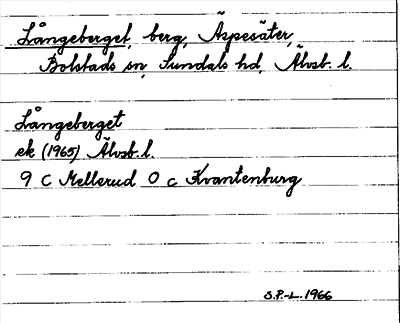 Långeberget, berg, Äspesäter,
Bolstads sn, Sundals hd, Älvsb. l.
Långeberget
ek (1965) Älvsb. l.
9 C Mellerud 0 c Kvantenburg
S.P.-L. 1966